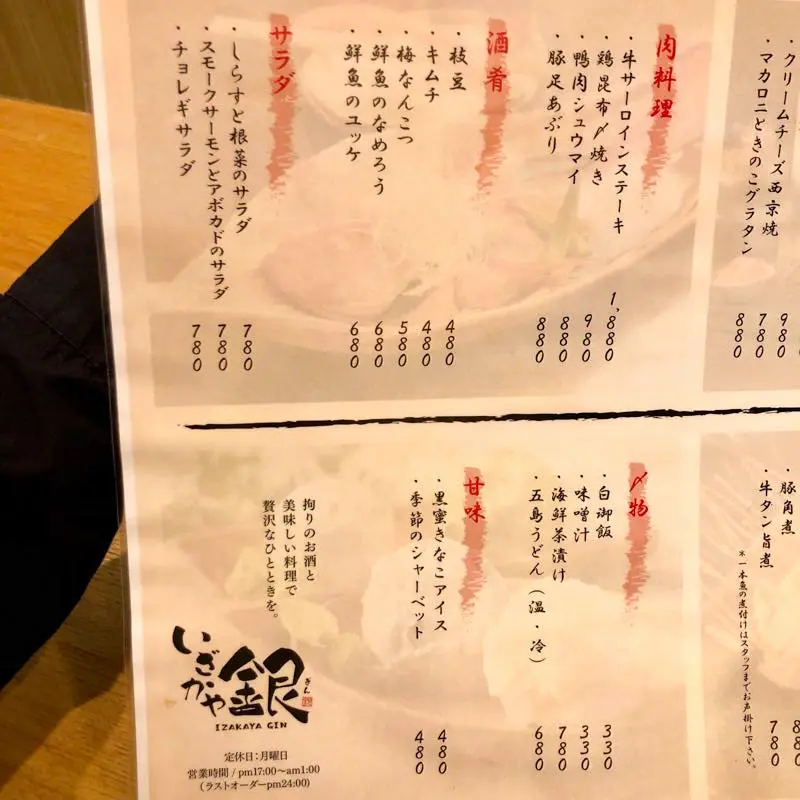 ・クリームチーズ西京焼
980
・マカロニときのこグラタン
780
880
肉料理
・牛サーロインステーキ
1,880
・鶏昆布〆焼き
980
・鴨肉シュウマイ
880
・豚足あぶり
880
酒肴
・枝豆
480
・キムチ
480
・梅なんこつ
580
・鮮魚のなめろう
680
・鮮魚のユッケ
680
サラダ
・しらすと根菜のサラダ
780
・スモークサーモンとアボカドのサラダ
780
・チョレギサラダ
780
・豚角煮
・牛タン旨煮
780
＊一本魚の煮付けはスタッフまでお声掛け下さい。
〆物
・白御飯
330
・味噌汁
330
・海鮮茶漬け
780
・五島うどん（温・冷）
680
甘味
・黒蜜きなこアイス
480
・季節のシャーベット
480
拘りのお酒と
美味しい料理で
贅沢なひとときを。
いざかや
銀
ぎん
IZAKAYA GIN
定休日：月曜日
営業時間 / pm17:00〜am1:00
（ラストオーダーpm24:00）